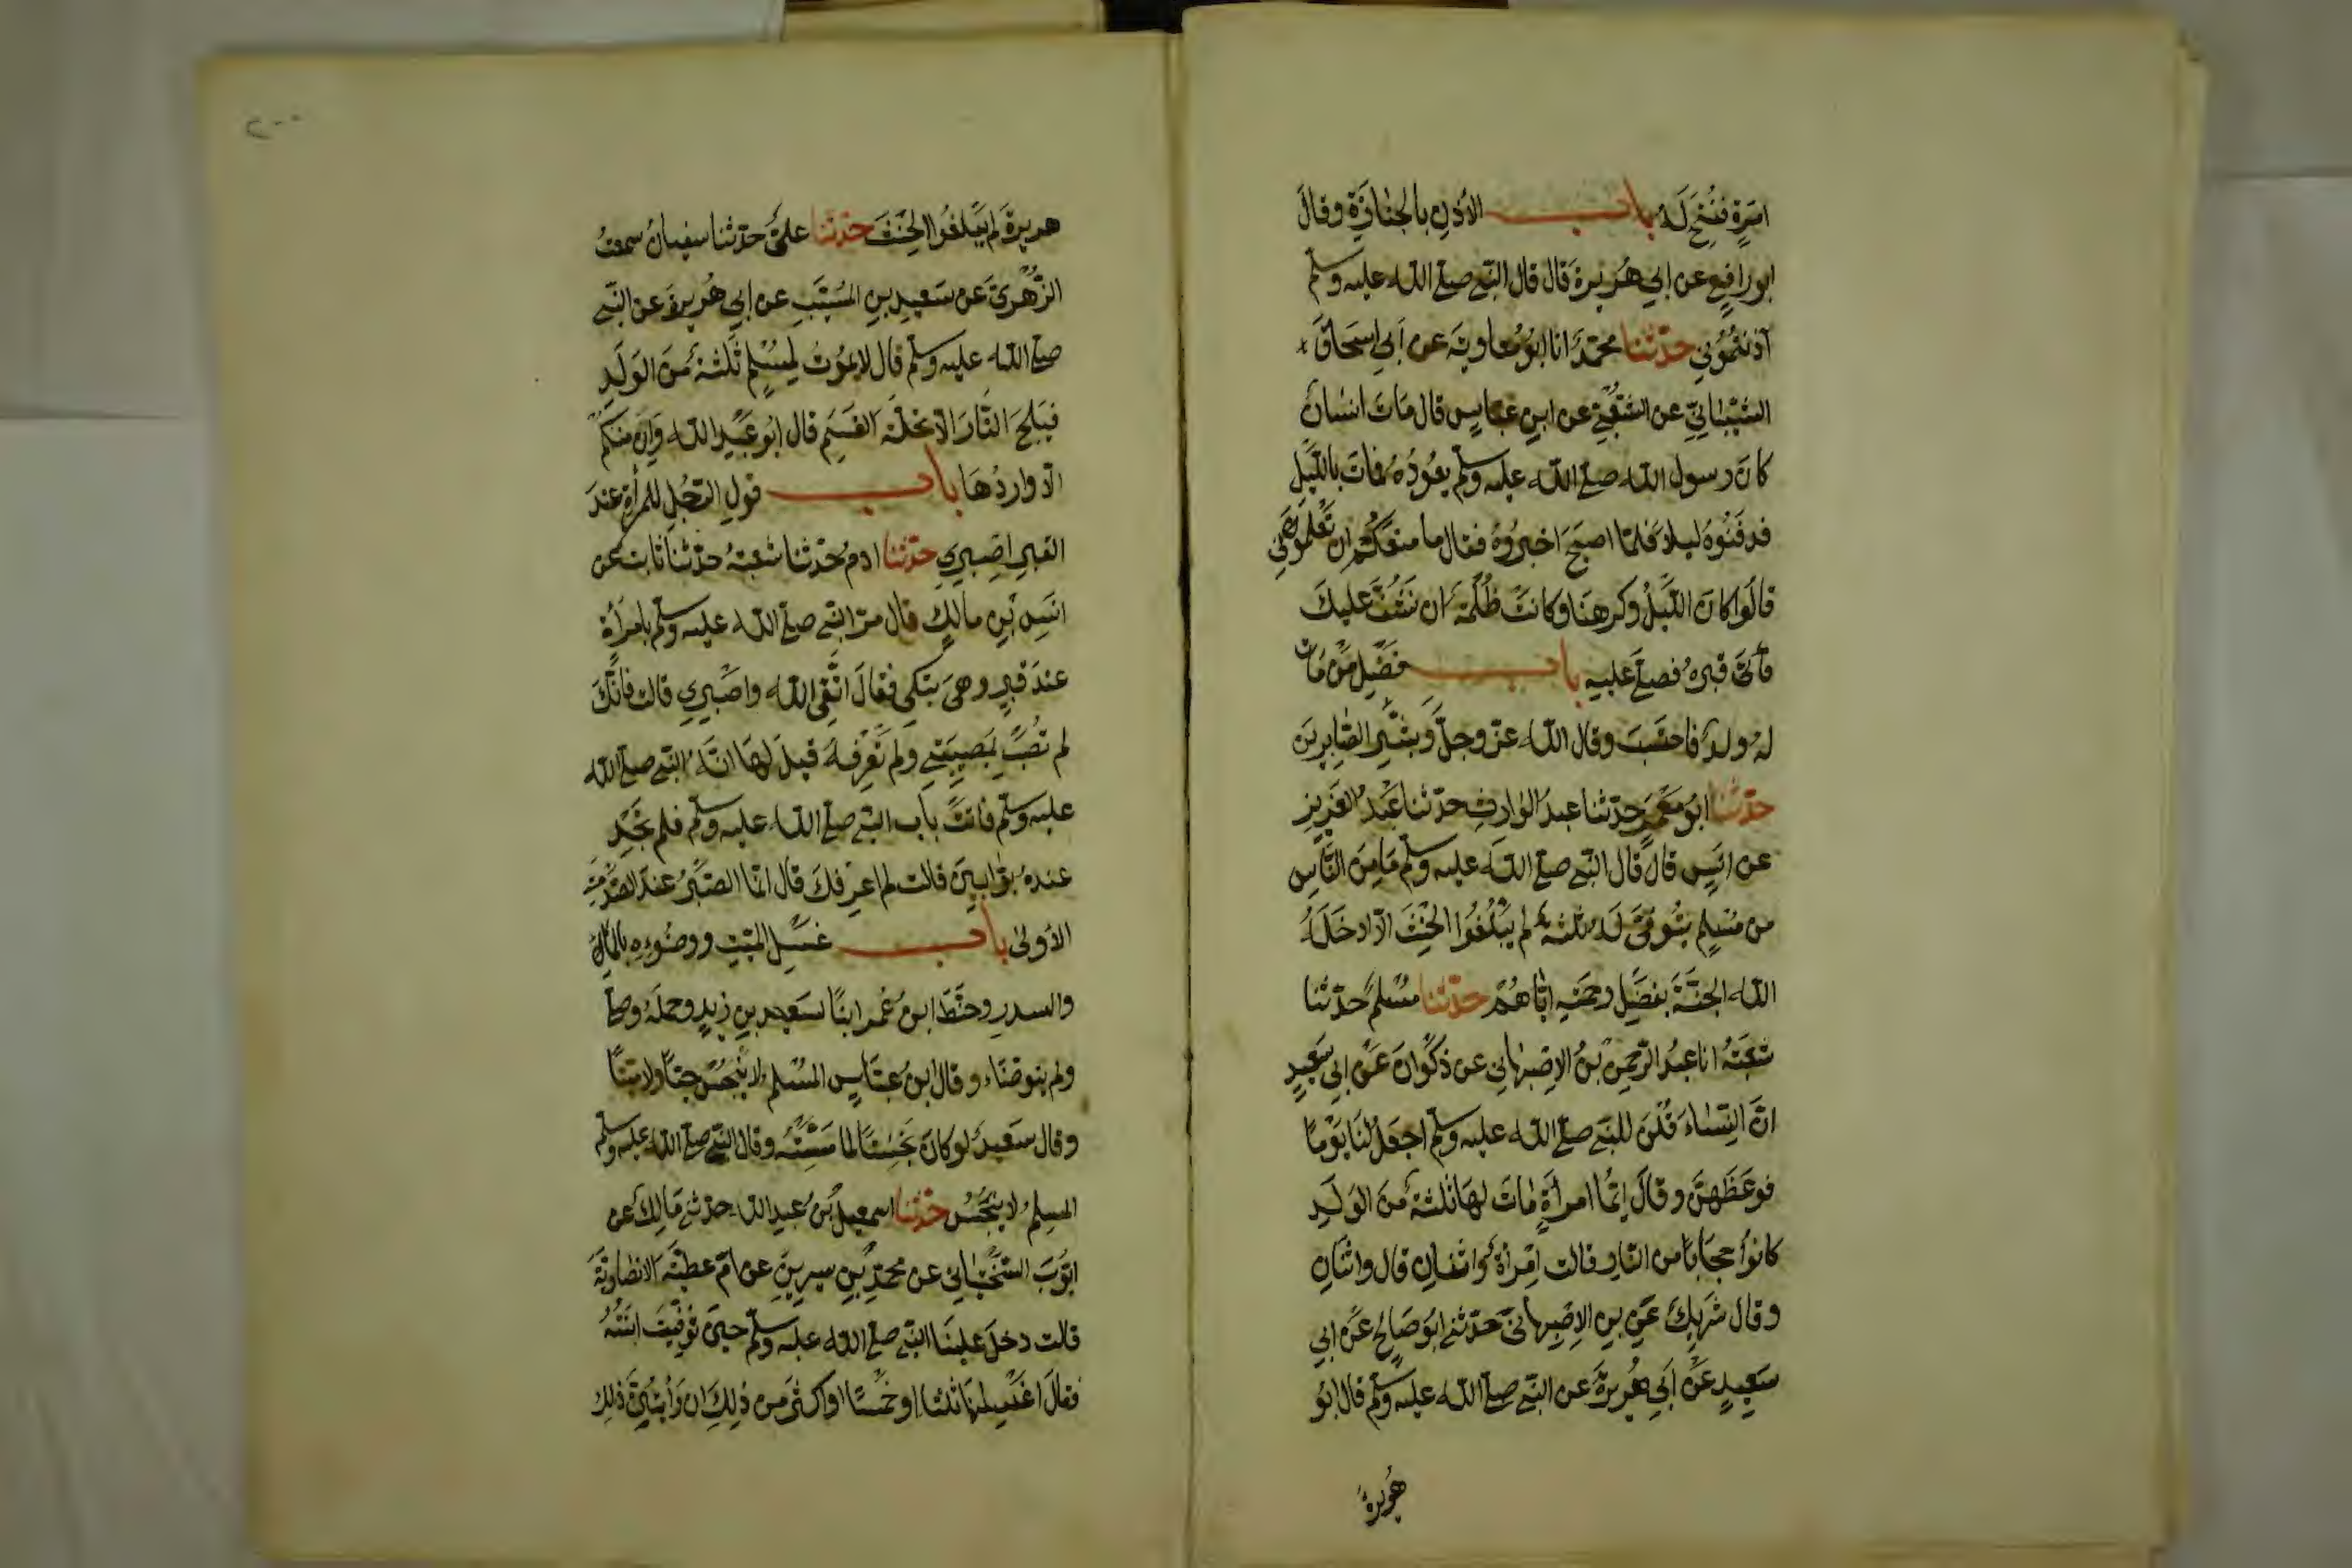 امرة ففتح له باب الاذن بالجنازة وقال
ابو رافع عن ابي هريرة قال قال النبي صلى الله عليه وسلم
آذنتموني حدثنا محمد انا ابو معاوية عن ابي اسحاق
الشيباني عن الشعبي عن ابن عباس قال مات انسان
كان رسول الله صلى الله عليه وسلم يعوده فمات بالليل
فدفنوه ليلا فلما اصبح اخبروه فقال ما منعكم ان تعلموني
قالوا كان الليل وكرهنا وكانت ظلمة ان نشق عليك
فأتى قبره فصلى عليه باب فضل من مات
له ولد فاحتسب وقال الله عز وجل وبشر الصابرين
حدثنا ابو معمر حدثنا عبد الوارث حدثنا عبد العزيز
عن انس قال قال النبي صلى الله عليه وسلم ما من الناس
من مسلم يتوفى له ثلثة لم يبلغوا الحنث الا ادخله
الله الجنة بفضل رحمته اياهم حدثنا مسلم حدثنا
شعبة انا عبد الرحمن بن الاصبهاني عن ذكوان عن ابي سعيد
ان النساء قلن للنبي صلى الله عليه وسلم اجعل لنا يوما
فوعظهن وقال ايما امرأة مات لها ثلثة من الولد
كانوا حجابا من النار قالت امرأة واثنان قال واثنان
وقال شريك عن بن الاصبهاني حدثني ابو صالح عن ابي
سعيد عن ابي هريرة عن النبي صلى الله عليه وسلم قال ابو
هريرة
٢٠٠
هريرة لم يبلغوا الحنث حدثنا علي حدثنا سفيان سمعت
الزهري عن سعيد بن المسيب عن ابي هريرة عن النبي
صلى الله عليه وسلم قال لا يموت لمسلم ثلثة من الولد
فيلج النار الا تحلة القسم قال ابو عبد الله وان منكم
الا واردها باب قول الرجل للمرأة عند
القبر اصبري حدثنا ادم حدثنا شعبة حدثنا ثابت عن
انس بن مالك قال مر النبي صلى الله عليه وسلم بامرأة
عند قبر وهي تبكي فقال اتقي الله واصبري قالت فانك
لم تصب بمصيبتي ولم تعرفه قيل لها انه النبي صلى الله
عليه وسلم فاتت باب النبي صلى الله عليه وسلم فلم تجد
عنده بوابين قالت لم اعرفك قال انما الصبر عند الصدمة
الاولى باب غسل الميت ووضوءه بالماء
والسدر وحنط ابن عمر ابنا لسعيد بن زيد وحمله وصلى
ولم يتوضاء وقال ابن عباس المسلم لا ينجس حيا ولا ميتا
وقال سعيد لو كان نجسا لما مسسته وقال النبي صلى الله عليه وسلم
المسلم لا ينجس حدثنا اسمعيل بن عبد الله حدثني مالك عن
ايوب السختياني عن محمد بن سيرين عن ام عطية الانصارية
قالت دخل علينا النبي صلى الله عليه وسلم حين توفيت ابنته
فقال اغسلنها ثلثا او خمسا او اكثر من ذلك ان رأيتن ذلك